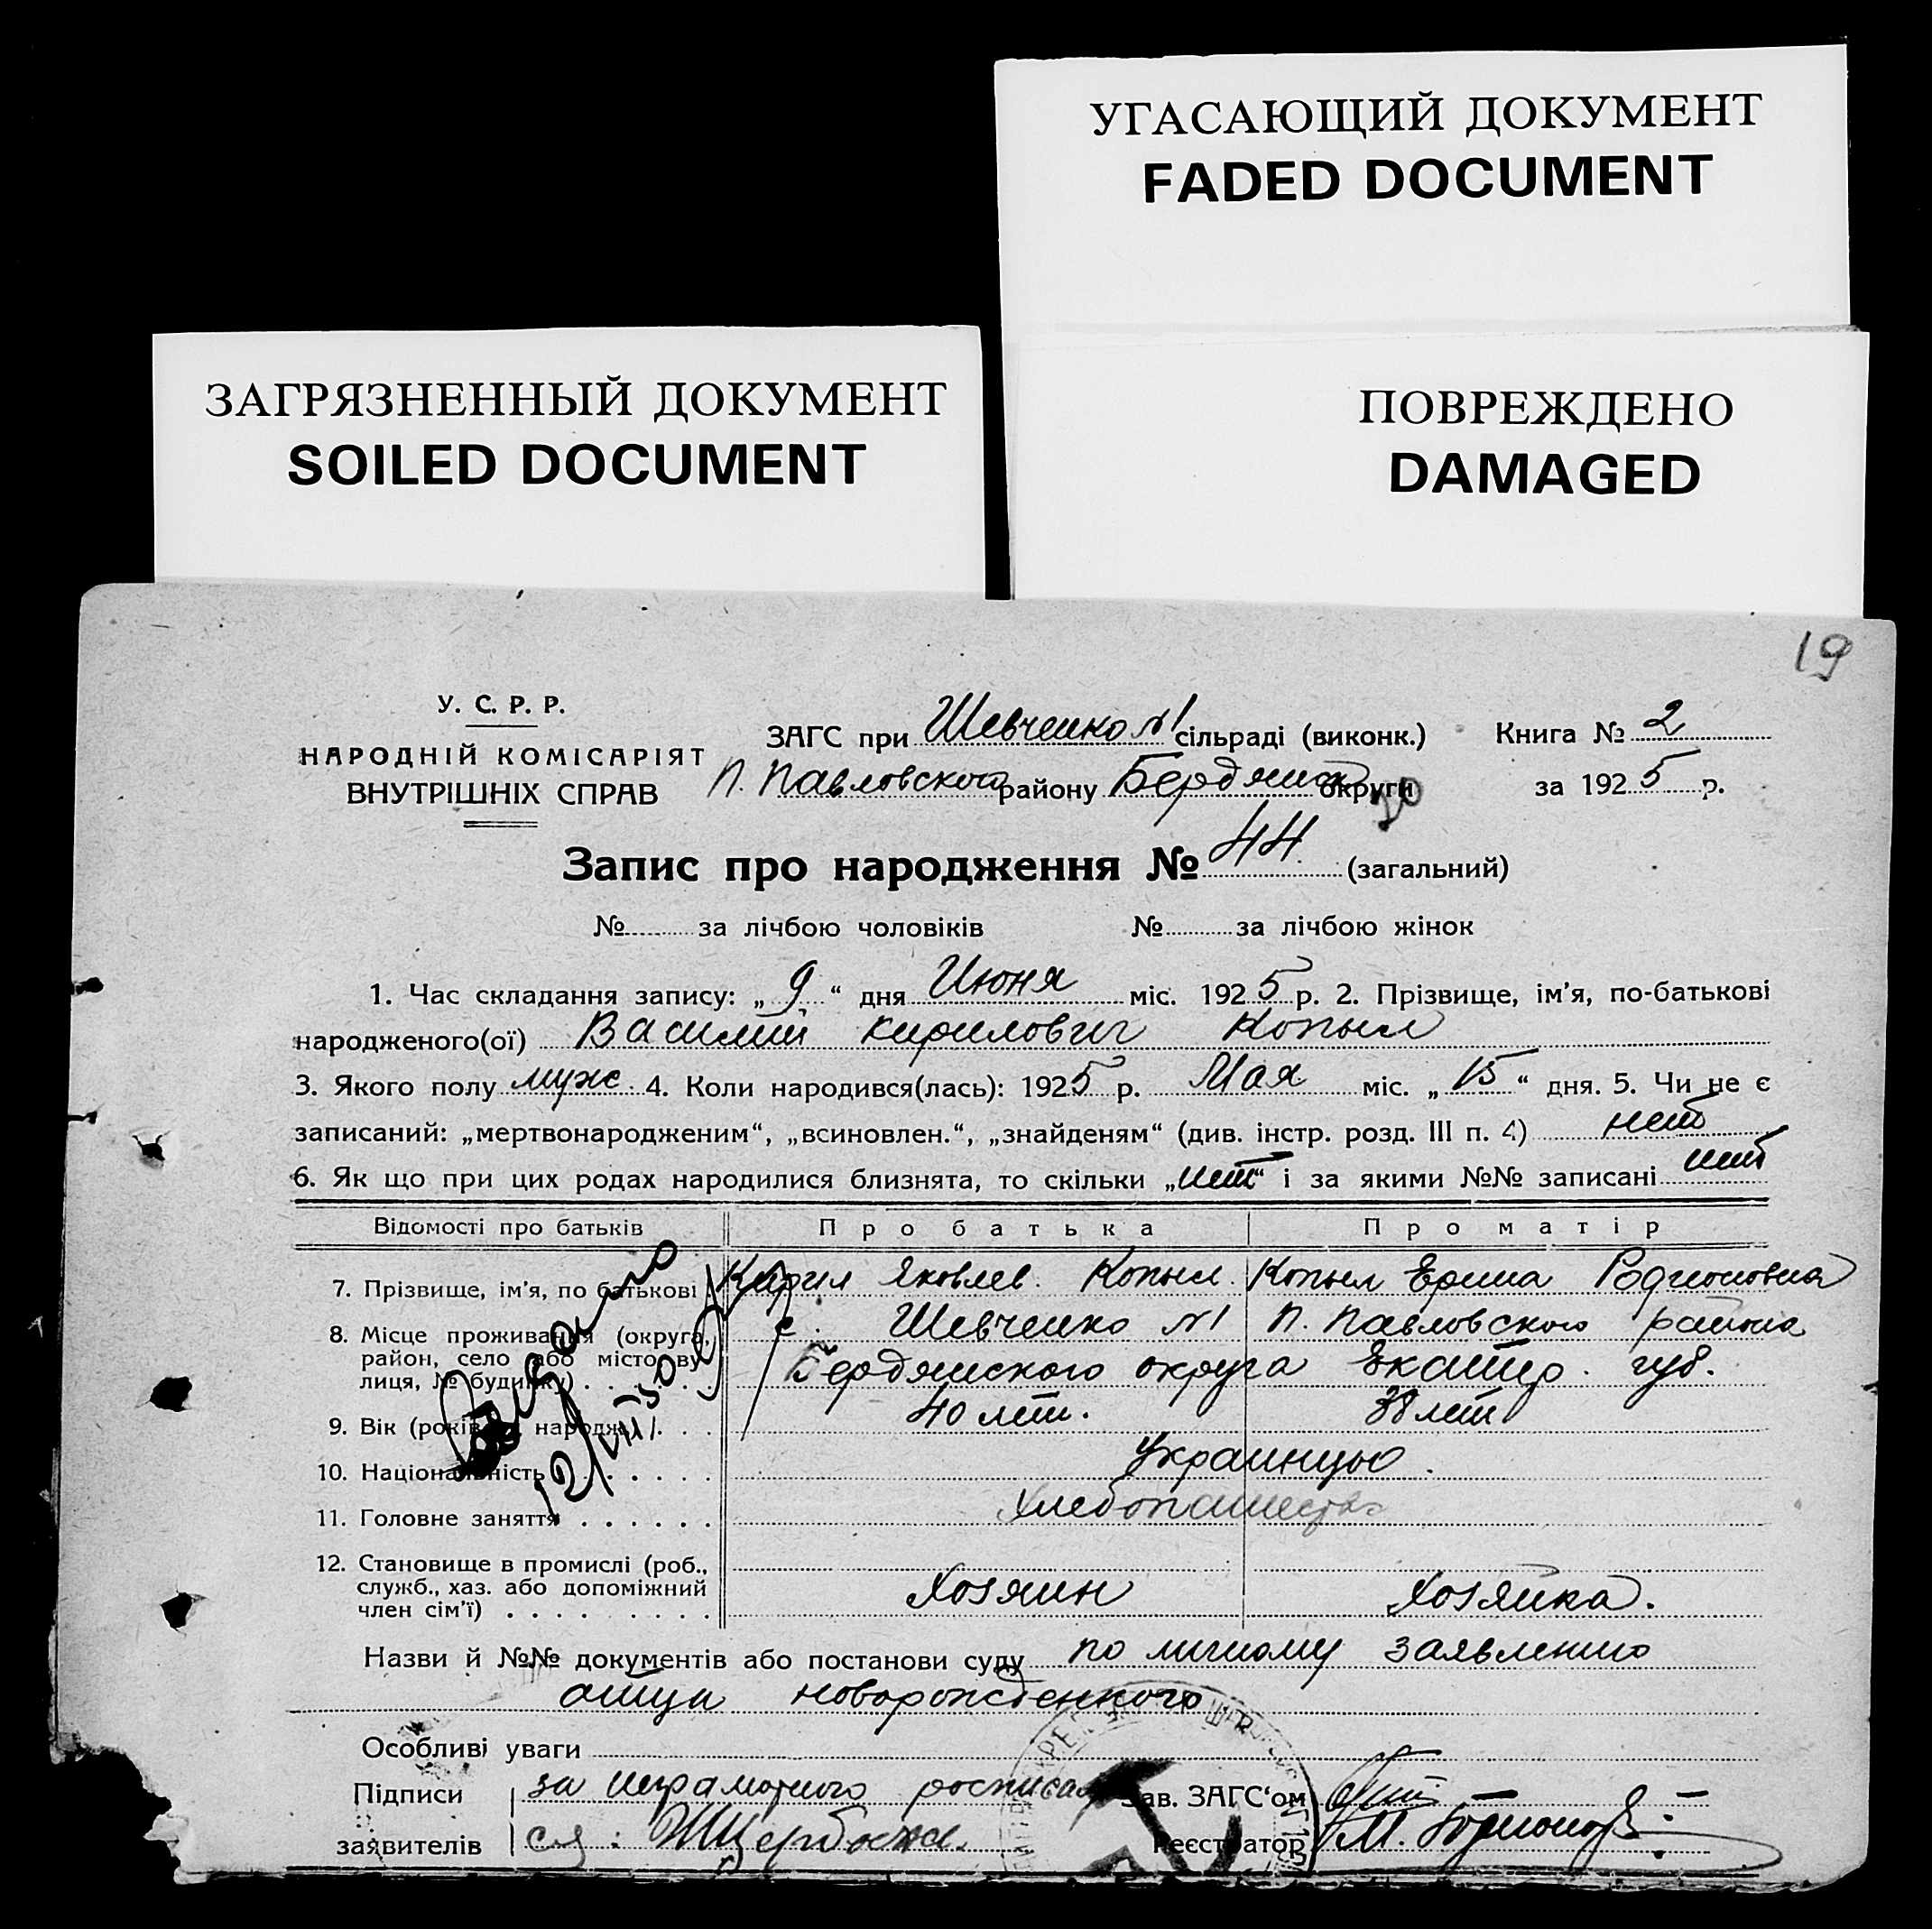 УГАСАЮЩИЙ ДОКУМЕНТ
FADED DOCUMENT
ЗАГРЯЗНЕННЫЙ ДОКУМЕНТ
SOILED DOCUMENT
ПОВРЕЖДЕНО
DAMAGED
19
У. С. Р. Р.
НАРОДНІЙ КОМІСАРІЯТ
ВНУТРІШНІХ СПРАВ
ЗАГС при Шевченко №1 сільраді (виконк.) Книга № 2
П. Павловского району Бердянск округи за 1925 р.
Запис про народження № 44 (загальний)
№ за лічбою чоловіків № за лічбою жінок
1. Час складання запису: „9“ дня Июня міс. 1925 р. 2. Прізвище, ім’я, по-батькові
народженого(ої) Василий Кирилович Копыл
3. Якого полу муж. 4. Коли народився(лась): 1925 р. Мая міс. „15“ дня. 5. Чи не є
записаний: „мертвонародженим“, „всиновлен.“, „знайденям“ (див. інстр. розд. III п. 4) нет
6. Як що при цих родах народилися близнята, то скільки „нет“ і за якими №№ записані нет
Відомості про батьків Про батька Про матір
7. Прізвище, ім’я, по батькові Кирил Яковлев. Копыл. Копыл Родионовна
8. Місце проживання (округа, с. Шевченко №1 П. Павловского района
район, село або місто, ву-
лиця, № будинку) Бердянского округа Екатер. губ.
9. Вік (років народж.) 40 лет. 38 лет
10. Національність Украинцы.
11. Головне заняття Хлебопашество
12. Становище в промислі (роб.,
служб., хаз. або допоміжний
член сім’ї) Хозяин Хозяйка.
Видано
12/VIII 30
Назви й №№ документів або постанови суду по личному заявлению
отца новорожденного
Особливі уваги
Підписи за неграмотного росписал Зав. ЗАГС‘ом
заявителів ся: Щербак Реєстратор М.